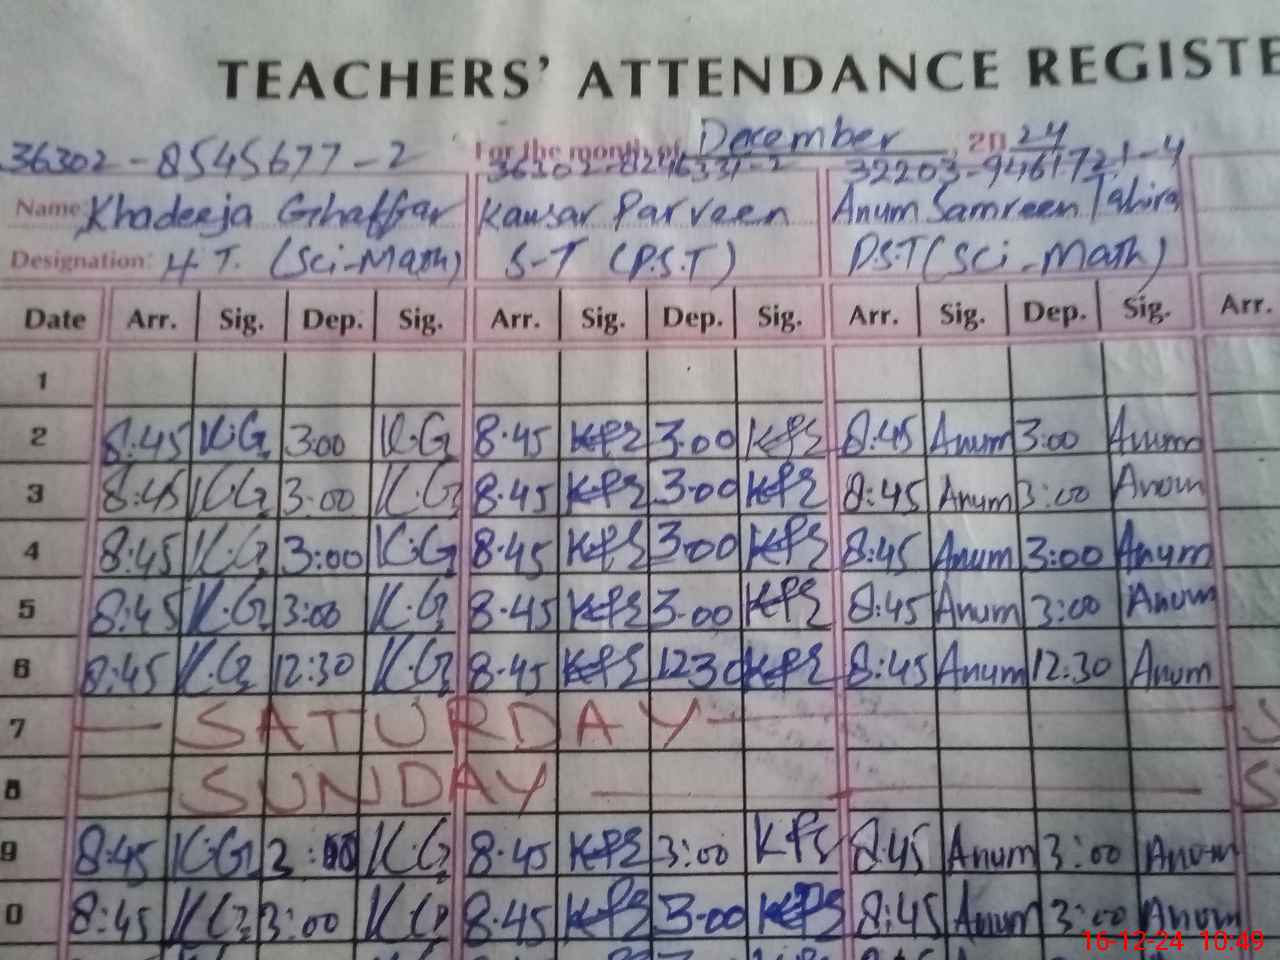 TEACHERS' ATTENDANCE REGISTE
For the month of December, 20 24
36302-8545677-2 36302-8246331-2 32203-9461721-4
Name: Khadeeja Ghaffar Kausar Parveen Anum Samreen Tahira
Designation: H.T. (Sci-Math) S-T (P.S.T) P.S.T (Sci-Math)
Date Arr. Sig. Dep. Sig. Arr. Sig. Dep. Sig. Arr. Sig. Dep. Sig. Arr.
1
2 8:45 K.G 3:00 K.G 8.45 KPS 3.00 KPS 8:45 Anum 3:00 Anum
3 8:45 K.G 3:00 K.G 8.45 KPS 3.00 KPS 8:45 Anum 3:00 Anum
4 8:45 K.G 3:00 K.G 8.45 KPS 3.00 KPS 8:45 Anum 3:00 Anum
5 8:45 K.G 3:00 K.G 8.45 KPS 3.00 KPS 8:45 Anum 3:00 Anum
6 8:45 K.G 12:30 K.G 8.45 KPS 1230 KPS 8:45 Anum 12:30 Anum
7 SATURDAY S
8 SUNDAY S
9 8:45 K.G K.G 8.45 KPS 3:00 KPS 8:45 Anum 3:00 Anum
0 8:45 K.G 3:00 K.G 8.45 KPS 3.00 KPS 8:45 Anum 3:00 Anum
16-12-24 10:49